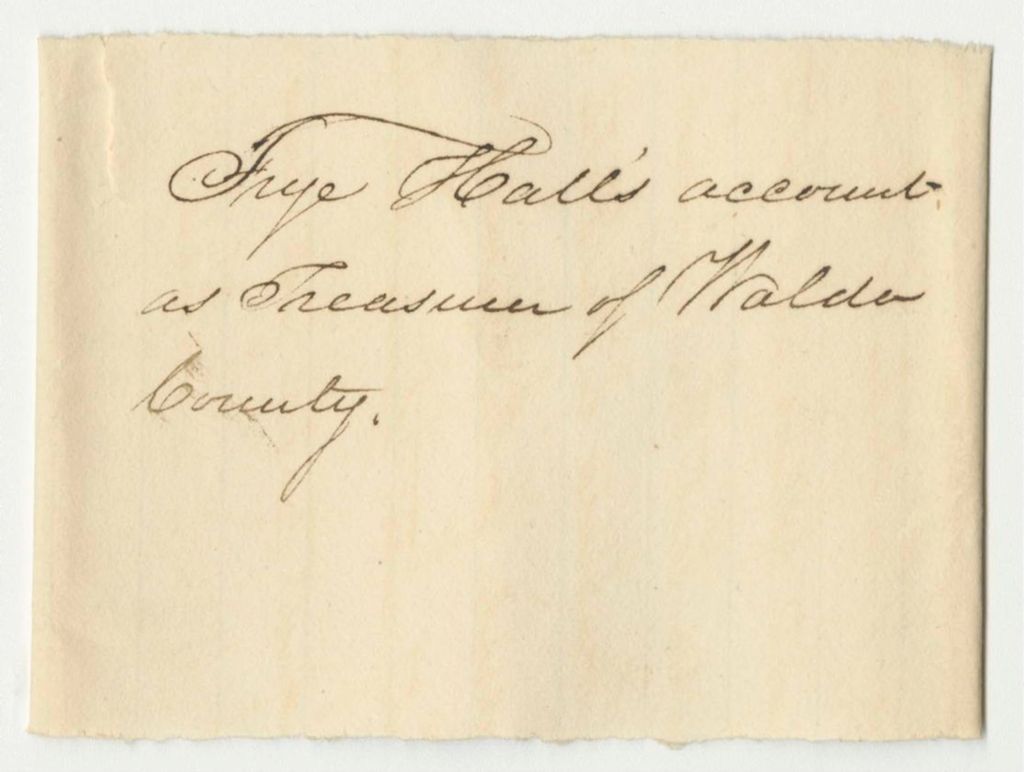 Frye Hall's account
as Treasurer of Waldo
County.